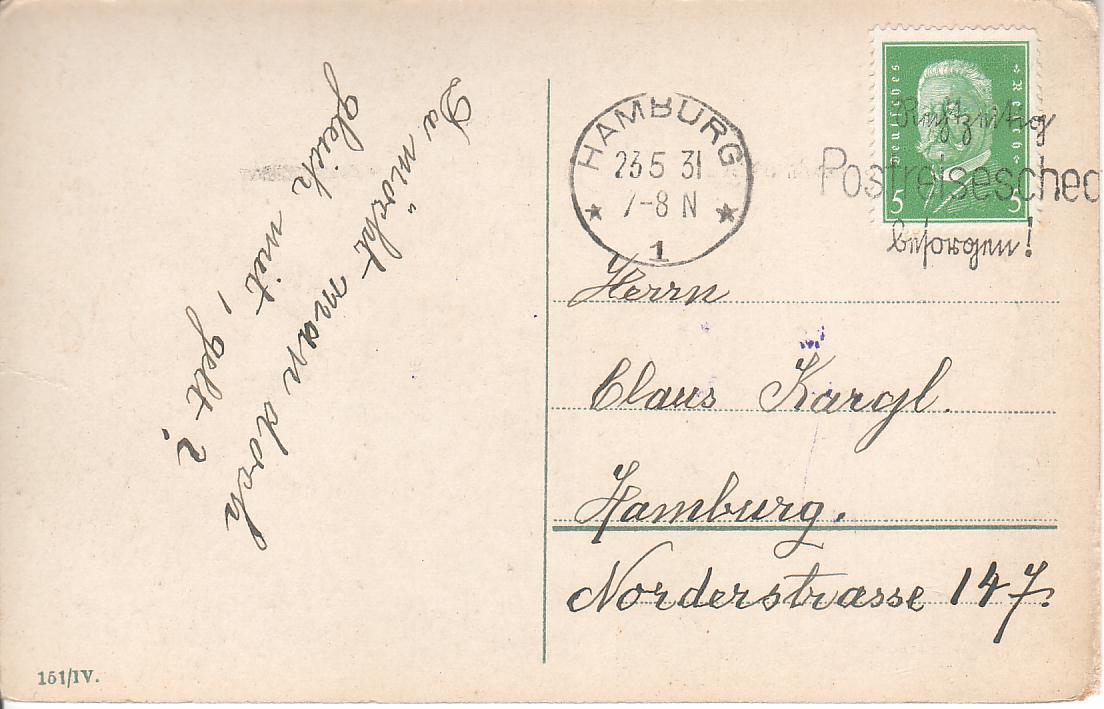 Da möcht man doch
gleich mit, gelt?
HAMBURG
23 5 31
7-8 N
★ 1 ★
Rechtzeitig
Postreisescheck
besorgen!
Deutsches Reich
5 5
Herrn
Claus Kargl.
Hamburg.
Norderstrasse 147.
151/IV.